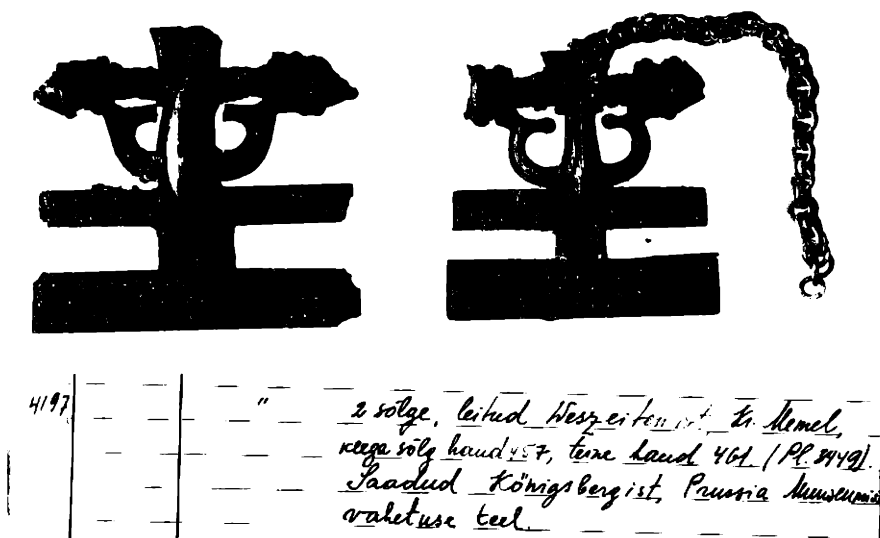 4197 " 2 sõlge, leitud Weszeitenist, Kr. Memel,
keega sõlg haud 457, teine haud 461. (Pl. 8449).
Saadud Königsbergist, Prussia Muuseumist
vahetuse teel.